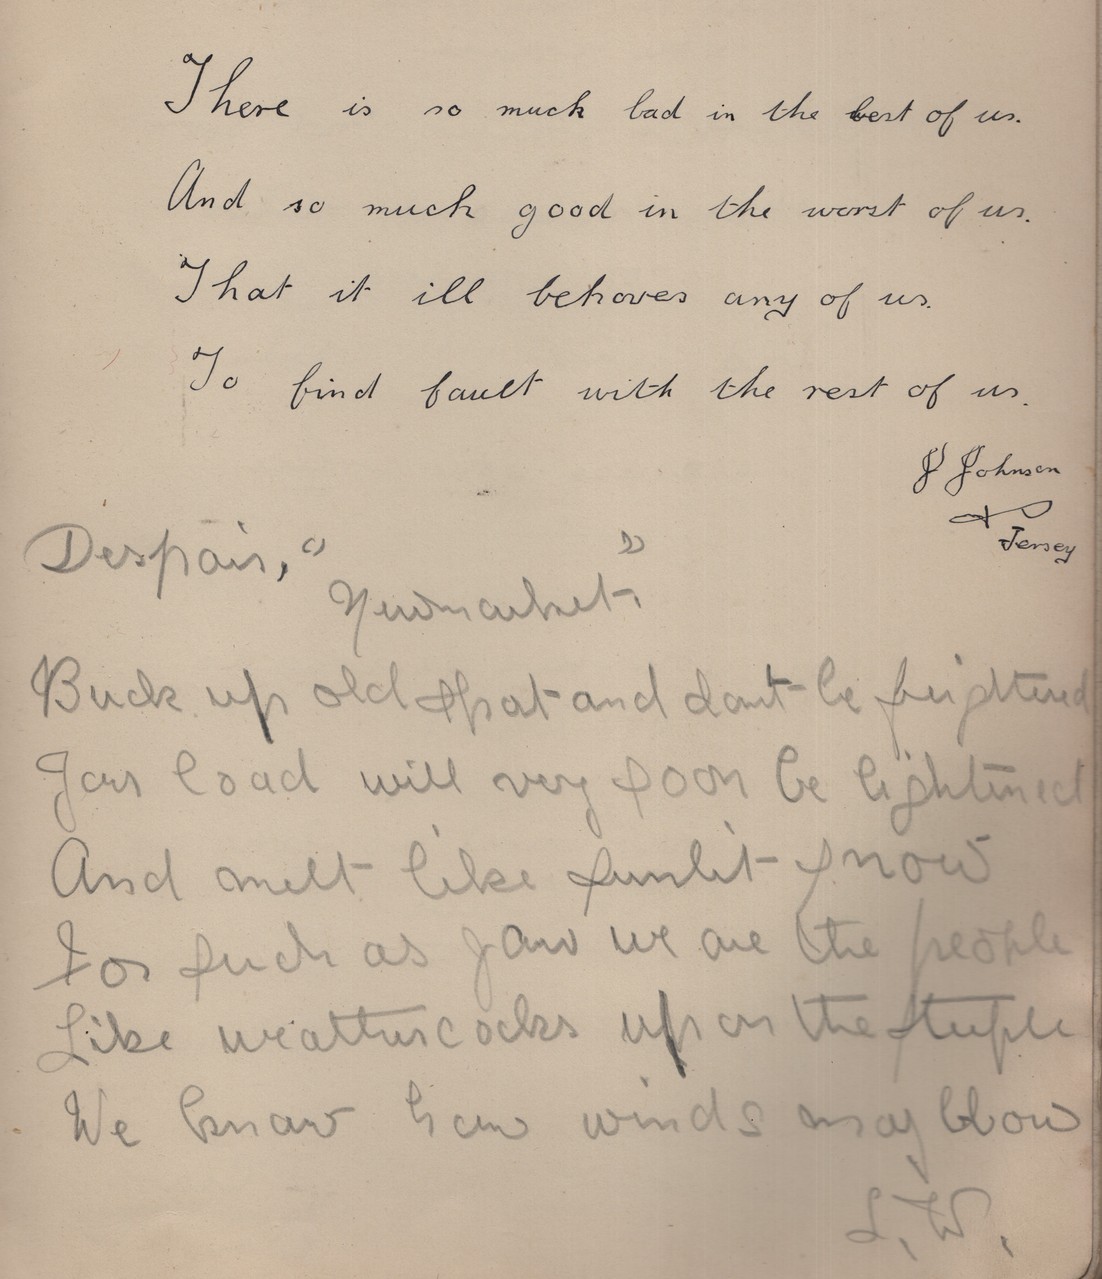 There is so much bad in the best of us.
And so much good in the worst of us.
That it ill behoves any of us.
To find fault with the rest of us.
J Johnson
Jersey
Despair, "
Newmarket "
Buck up old spat and don't be frightened
Your load will very soon be lightened
And melt like sunlit snow
For such as you we are the people
Like weathercocks upon the steeple
We know how winds may blow
L. W.